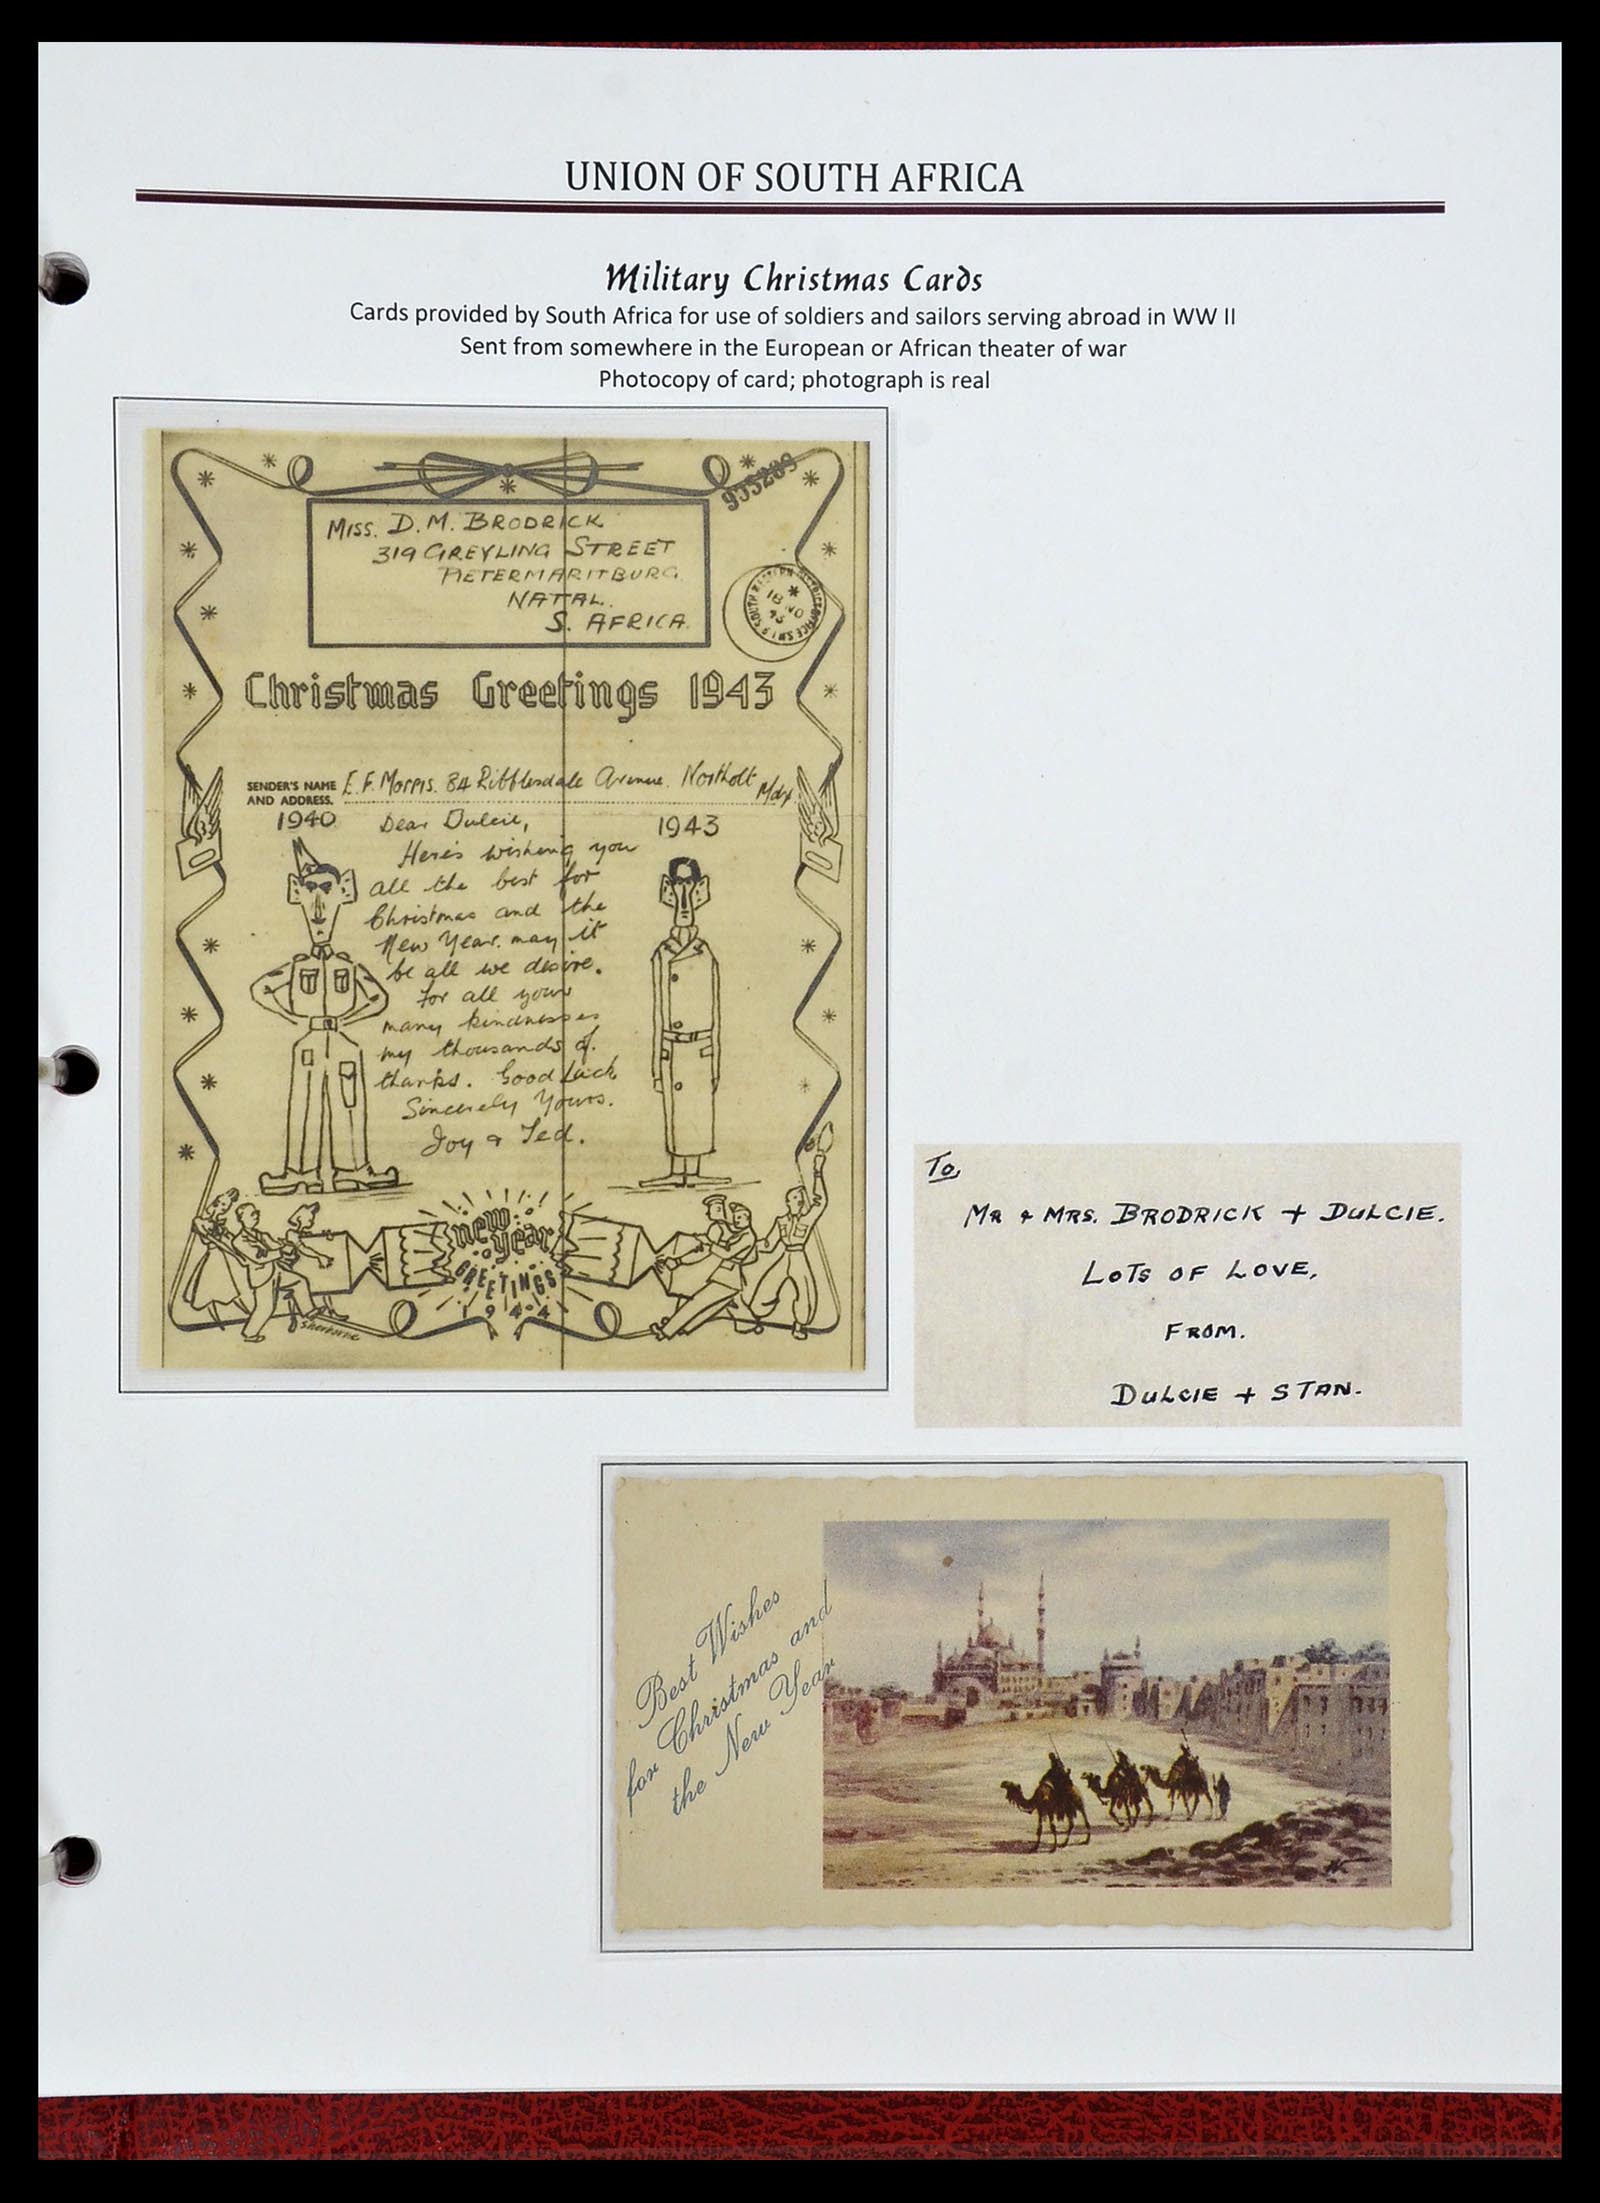 UNION OF SOUTH AFRICA
Military Christmas Cards
Cards provided by South Africa for use of soldiers and sailors serving abroad in WW II
Sent from somewhere in the European or African theater of war
Photocopy of card; photograph is real
935289
MISS. D. M. BRODRICK
319 GREYLING STREET
PIETERMARITBURG
NATAL.
S. AFRICA.
SOUTH WESTERN DISTRICT OFFICE S.W.1
18 NO
43
Christmas Greetings 1943
SENDER'S NAME AND ADDRESS. E. F. Morris. 84 Ribblesdale Avenue. Northolt Mdx
1940
1943
Dear Dulcie,
Here's wishing you
all the best for
Christmas and the
New Year. may it
be all we desire.
For all your
many kindnesses
my thousands of.
thanks. Good Luck
Sincerely Yours.
Joy & Ted.
new year
GREETINGS
1944
To,
MR & MRS. BRODRICK + DULCIE.
LOTS OF LOVE,
FROM.
DULCIE + STAN.
Best Wishes
for Christmas and
the New Year